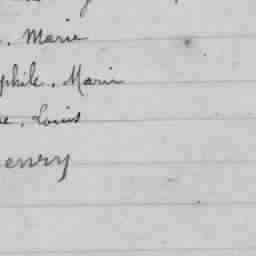 . Marie
phile. Marin
e, Louis
enry